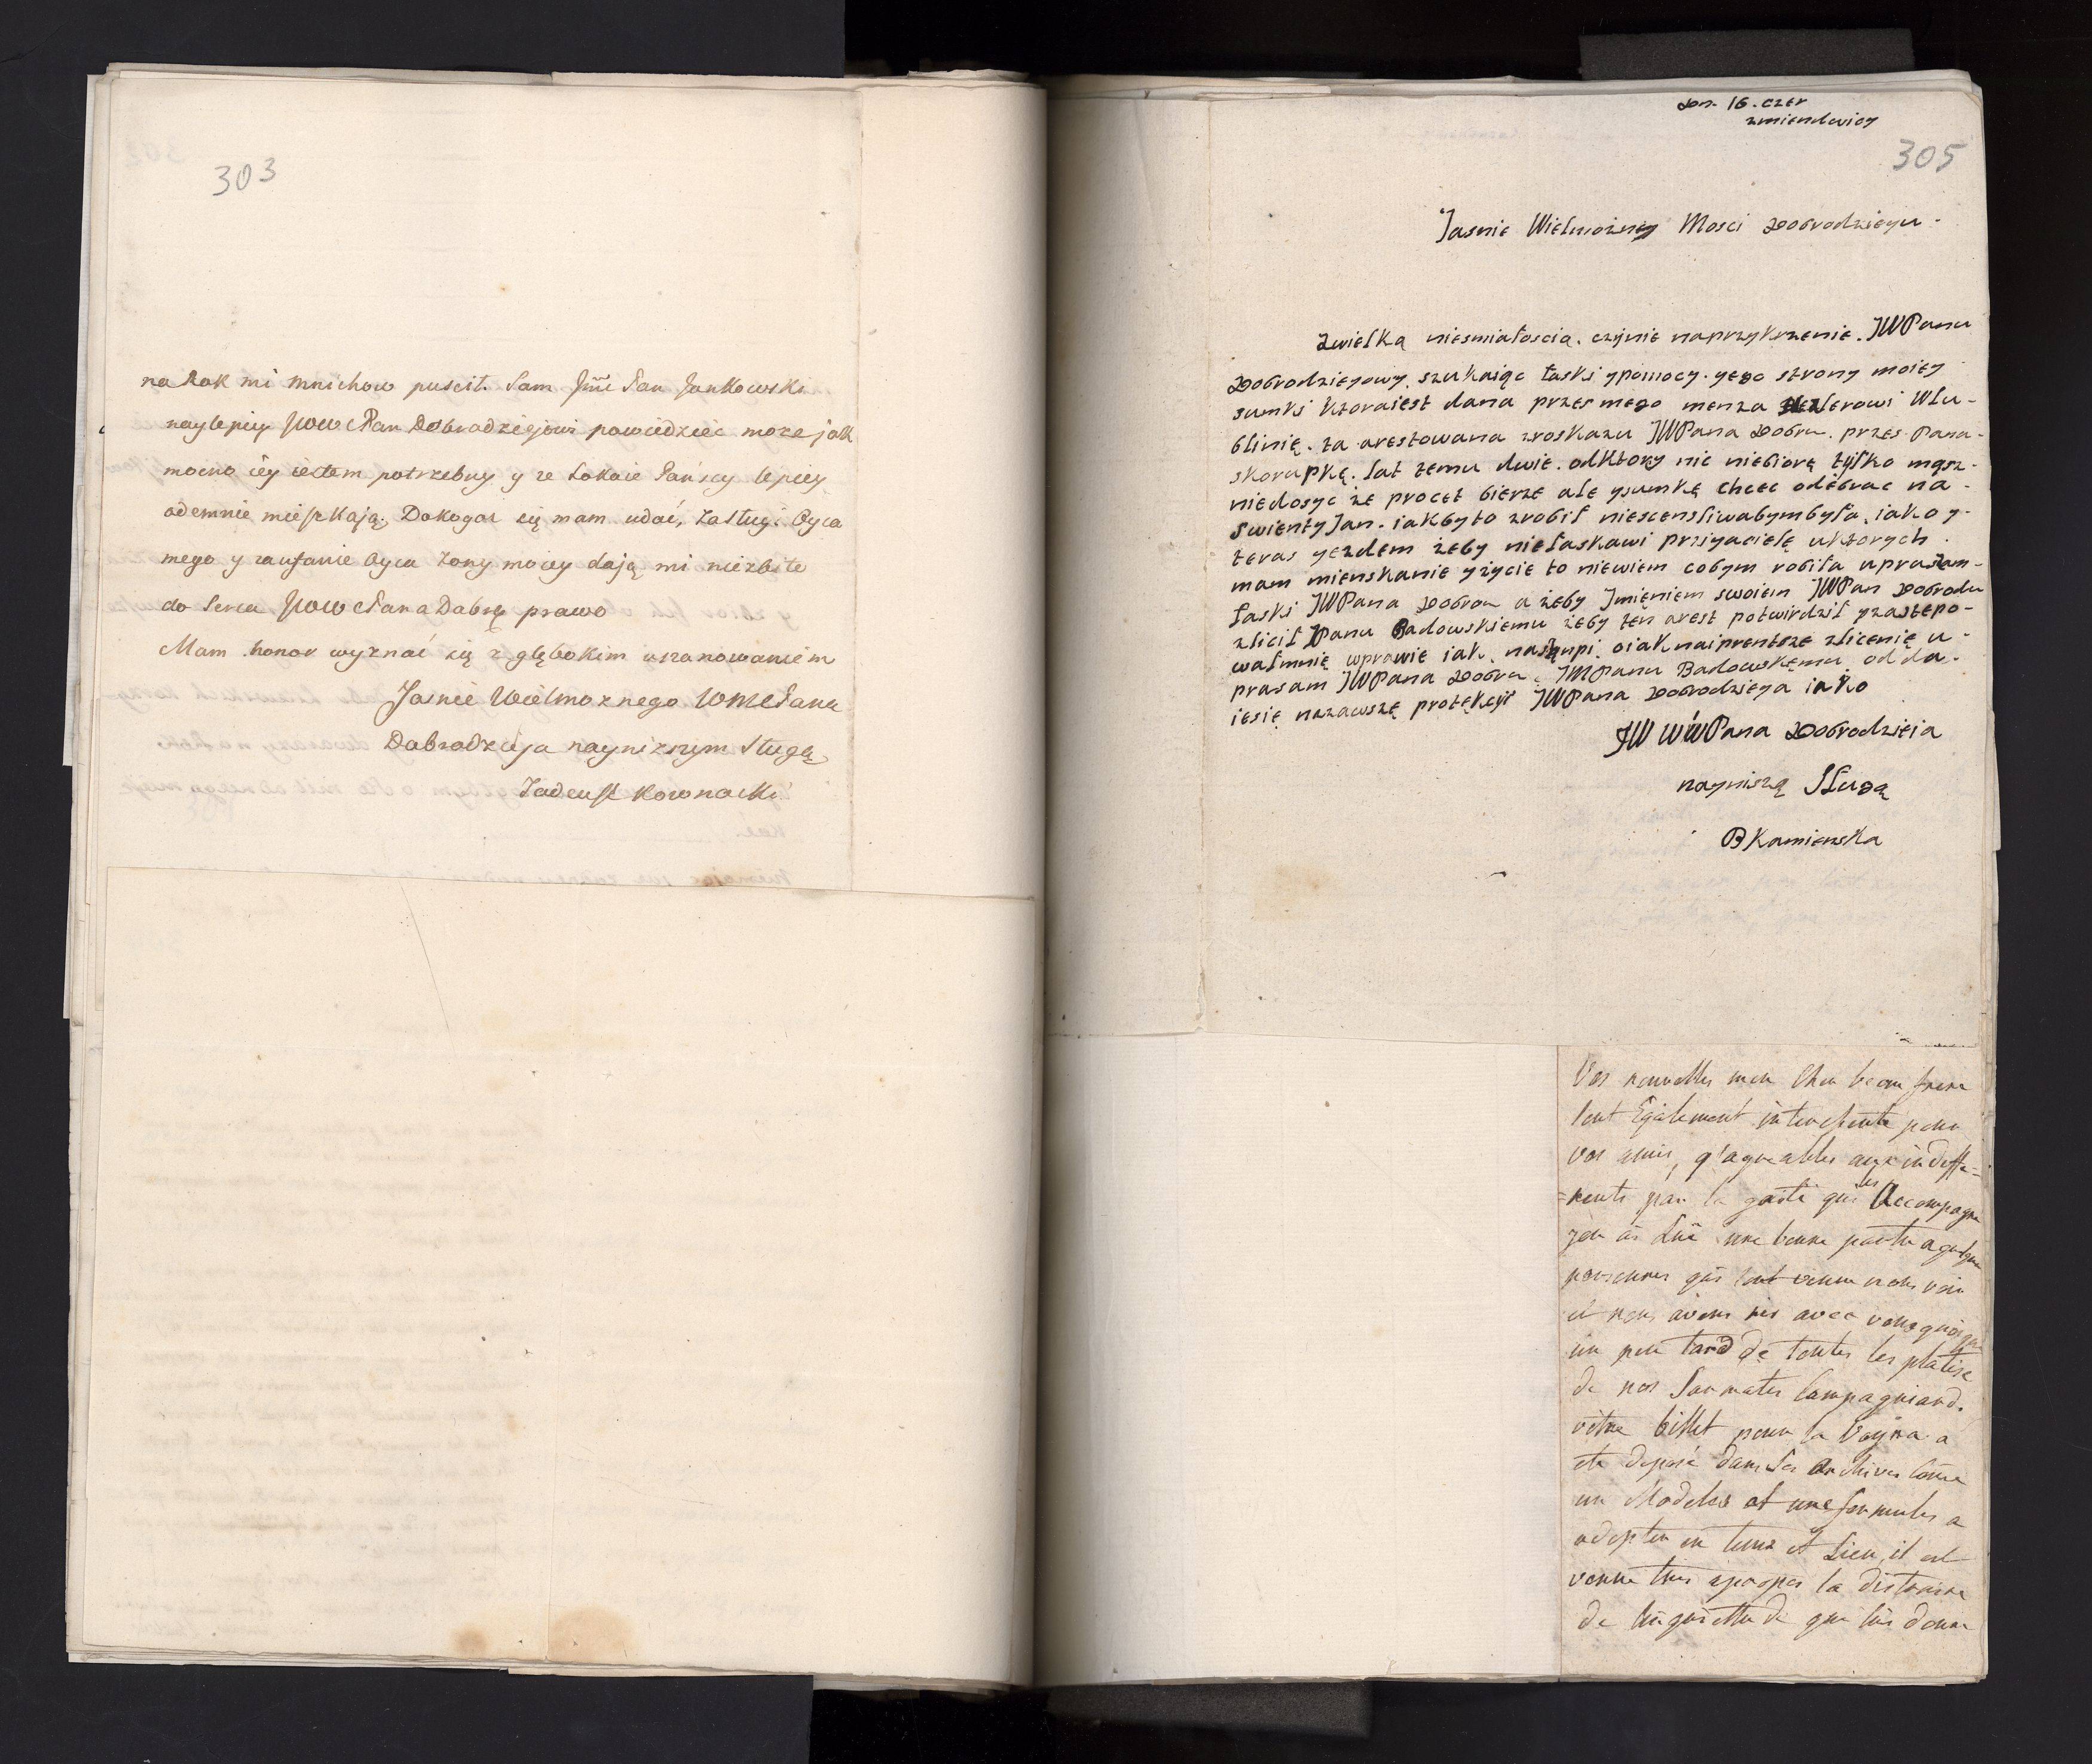 303
na Rok mi mnichow puscit. Sam Jmć Pan Jankowski
naylepiey JWW Pan Dobrodziejowi powiedziec moze jak
mocno iey iestem potrzebny y ze Lokaie Pańscy lepiey
odemnie mieszkają. Dokogoz się mam udać, zasługi Oyca
mego y zaufanie Oyca Zony moiey dają mi niezbite
do Serca JWW Pana Dobrę prawo
Mam honor wyznać się z głębokim uszanowaniem
Jasnie Wielmoznego WMC Pana
Dobrodzieja nayniższym sługą
Tadeusz Kownacki
den. 16. czer
zmiendwicy
305
Jasnie Wielmozney Mosci Dobrodziegu.
Zwielką niesmiałoscią. czynie naprzykrzenie. JWPanu
Dobrodziegowy. szukaiąc łaski ypomocy. yego strony moiey
sumki ktoraiest dana przes mego menza lerowi Wlu-
blinię. za arestowana zroskazu JWPana Dobro. przes. Pana-
skorupkę. lat temu dwie. odktory nic niebiorę tylko męsz-
niedosyc że procet bierze ale ysumkę chcec odebrac na-
Swienty Jan. iakbyto zrobił niescensliwabymbyła. iako y-
teras yezdem żeby niełaskawi przyiacielę uktorych
mam mienskanie yżycie to niewiem cobym robiła upraszam-
łaski JWPana Dobron a żeby Jmięniem swoiem JWPan Dobrodu
zlicił JPanu Badowskiemu żeby tęn arest potwirdził yzastępo-
wałmnię wprawie iak nastąnpi oiaknaiprentsze zlicenię u-
prasam JWPana Dobro. JMPanu Badowskęmu odda-
iesię nazawszę protękcyi JWPana Dobrodzieya iako
JW WWPana Dobrodzieia
nayniszą Sługą
B Kamienska
Vos nouvelles mon Cher beau frere
sont Également interessente pour
vos amis, q'agreables aux indiffe-
=rents par la gaité qui les Accompagne
jen ai Luë une bonne partie a quelques
personnes qui sont venue nous voir
et nous avons ris avec vous quoique
un peu tard de toutes les platise
de nos Sarmates Campagniard.
vôtre billet pour la Voÿna a
ete deposé dans les Archives come
un Modeles et une formules a
adopter en tems et Lieu, il est
venue tres apropos la distraire
de linquiettude que lui donne